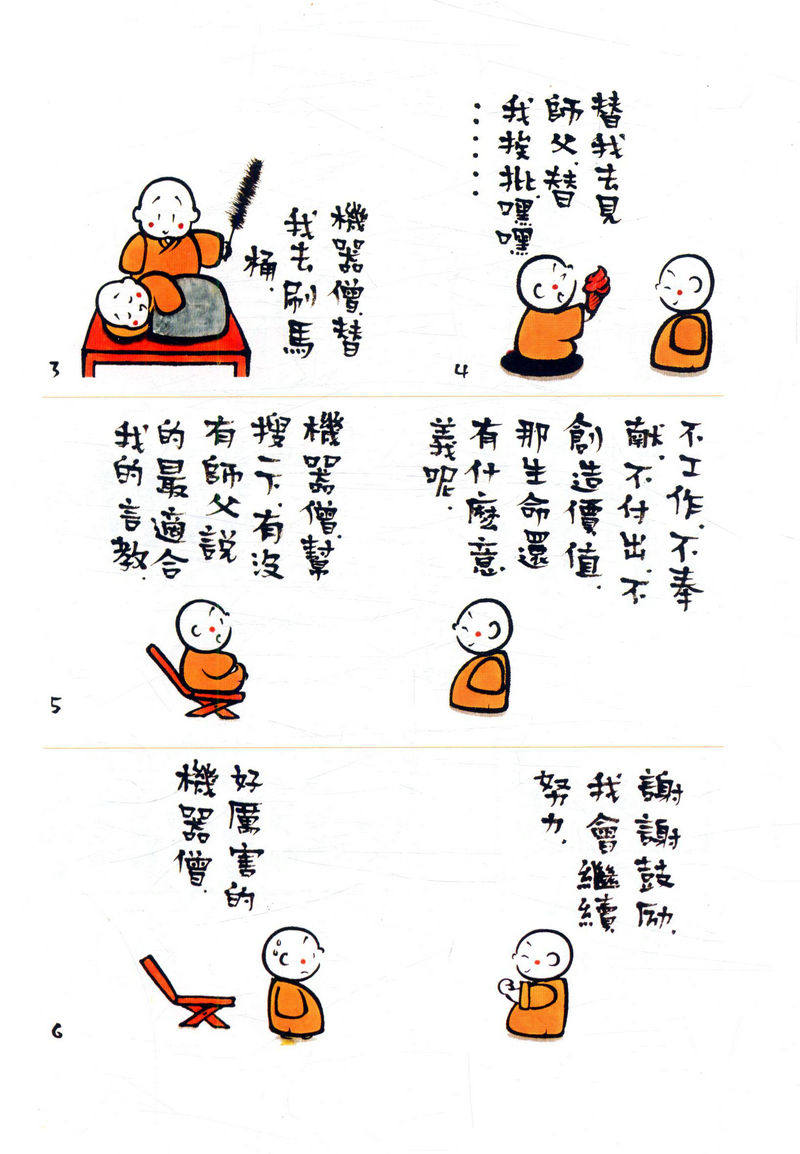 3
機器僧,替
我去刷馬
桶,
4
替我去見
師父,替
我挨批,嘿嘿
……
5
機器僧,幫
搜一下,有沒
有師父說
的最適合
我的言教.
不工作,不奉
献,不付出,不
創造價值,
那生命還
有什麼意
義呢.
6
好厲害的
機器僧.
謝謝鼓励,
我會繼續
努力.